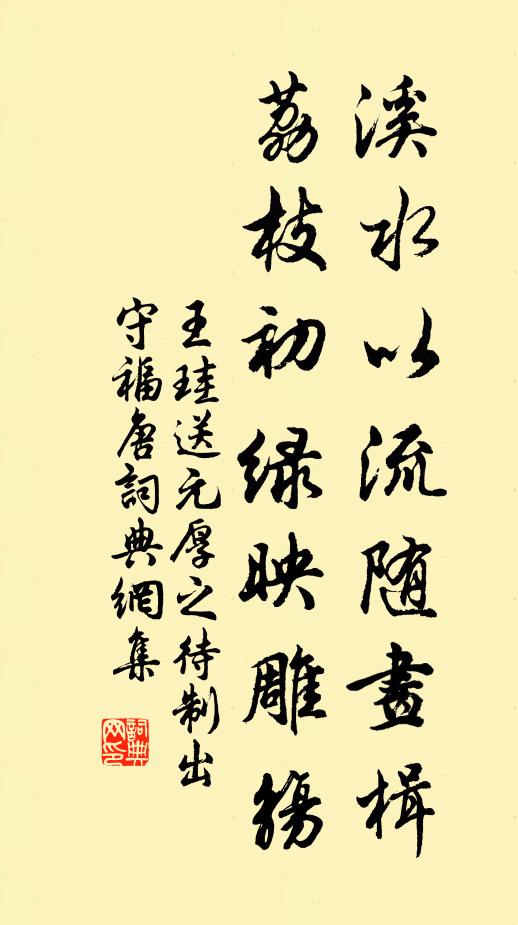 溪水以流随畫楫
荔枝初緑映雕觴
王珪送元厚之待制出
守福唐詞典網集
詞典網印